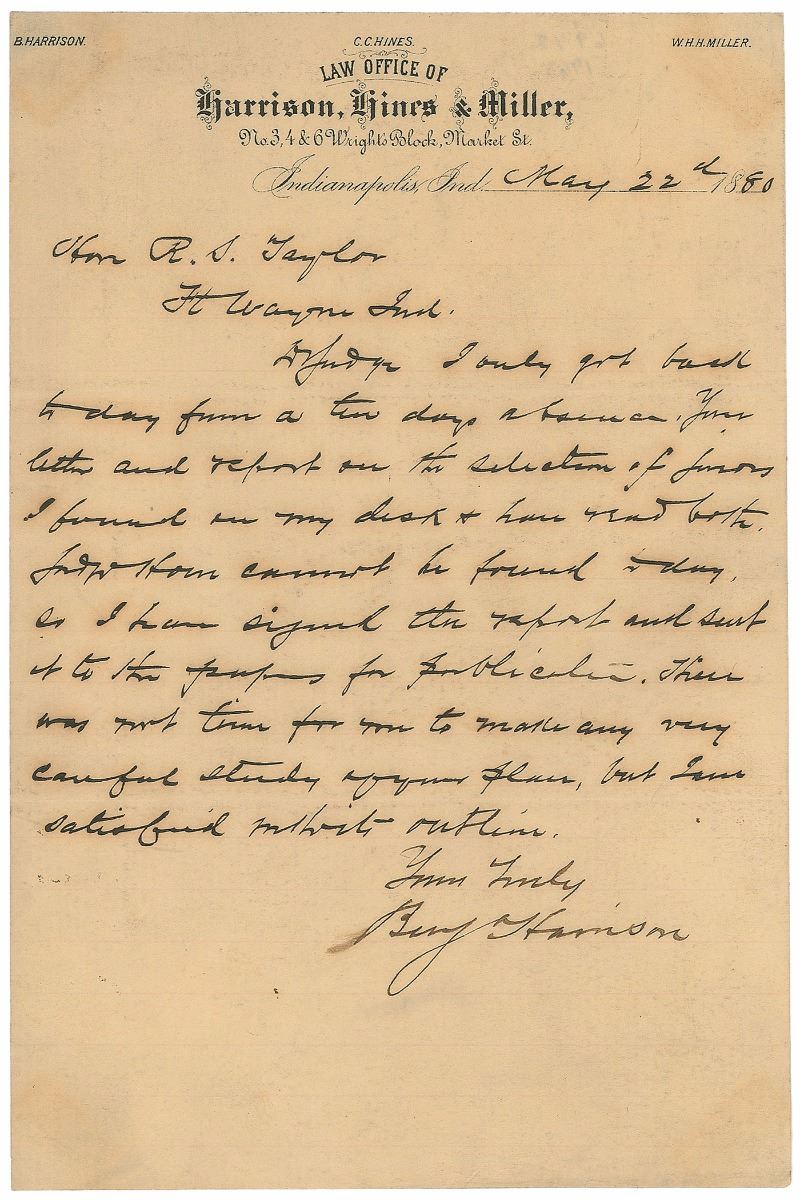 B. HARRISON. C. C. HINES. W. H. H. MILLER.
LAW OFFICE OF
Harrison, Hines & Miller,
No. 3, 4 & 6 Wright's Block, Market St.
Indianapolis, Ind. May 22d 1880
Hon R. S. Taylor
Ft Wayne Ind.
Dr Judge I only got back
to day from a ten days absence. Your
letter and report on the selection of jurors
I found on my desk & have read both.
cannot be found to day,
so I have signed the report and sent
it to the papers for publication. There
was not time for me to make any very
careful study of your plan, but I am
satisfied with its outline.
Yours Truly
Benj Harrison